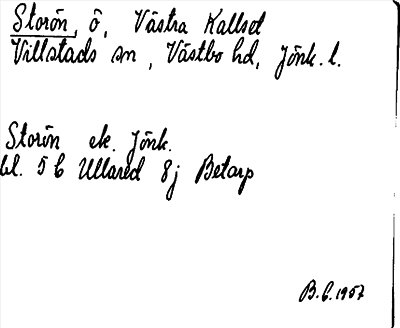 Storön, ö, Västra Kallset
Villstads sn, Västbo hd, Jönk. l.
Storön ek. Jönk.
bl. 5 b Ullared 8j Betarp
B.C. 1957